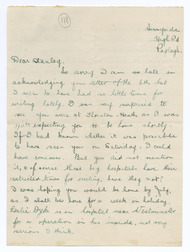 Sunnyside
High Rd
Rayleigh.
Dear Stanley,
So sorry I am so late in
acknowledging your letter of the 6th but
I seem to have had so little time for
writing lately. I was very surprised to
see you were at Staxton. Heath as I was
quite expecting you to be home shortly.
If I had known whether it was possible
to have seen you on Saturday, I could
have come. But you did not mention
it, & of course these big hospitals have their
restricted times for visiting, have they not?
I was hoping you would be home by July,
as I shall be home for a week on holiday.
is in hospital near Westminster
for a operation on her inside, not very
serious I think.